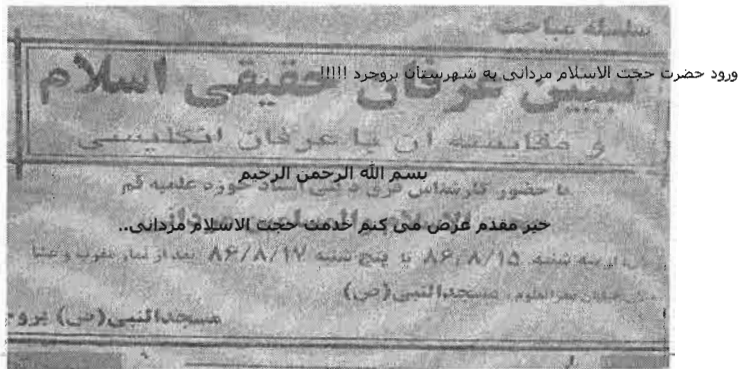 سلسله مباحث
ورود حضرت حجت الاسلام مردانی به شهرستان بروجرد !!!!!
تبیین عرفان حقیقی اسلام
و مقایسه آن با عرفان انگلیسی
بسم الله الرحمن الرحیم
با حضور کارشناس فرق و ادیان استاد حوزه علمیه قم
خیر مقدم عرض می کنم خدمت حجت الاسلام مردانی..
سه شنبه ۸۶/۸/۱۵ تا پنج شنبه ۸۶/۸/۱۷ بعد از نماز مغرب و عشا
خیابان بحرالعلوم ، مسجدالنبی(ص)
مسجدالنبی(ص)